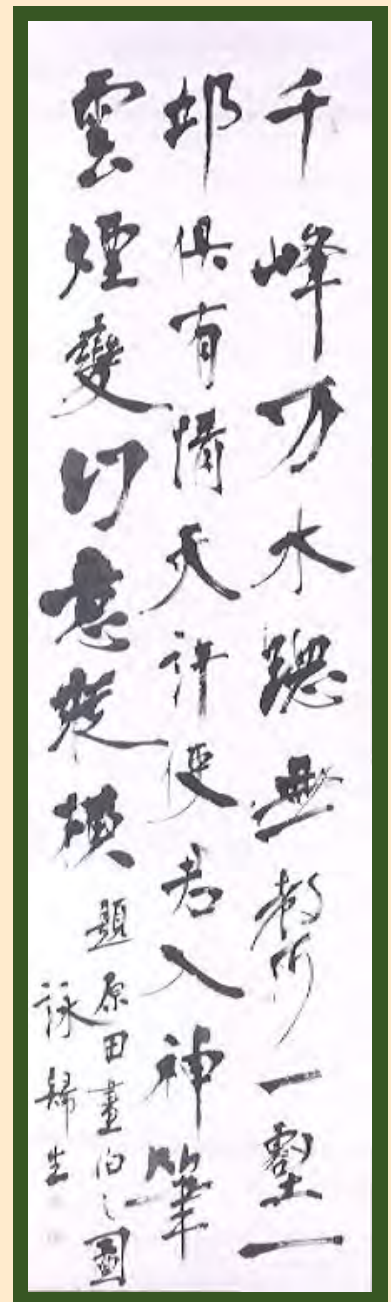 千峰万水聴無聲一壑一
邱俱有情天許使君入神筆
雲煙變幻意縱横
題原田畫伯之圖
詠歸生